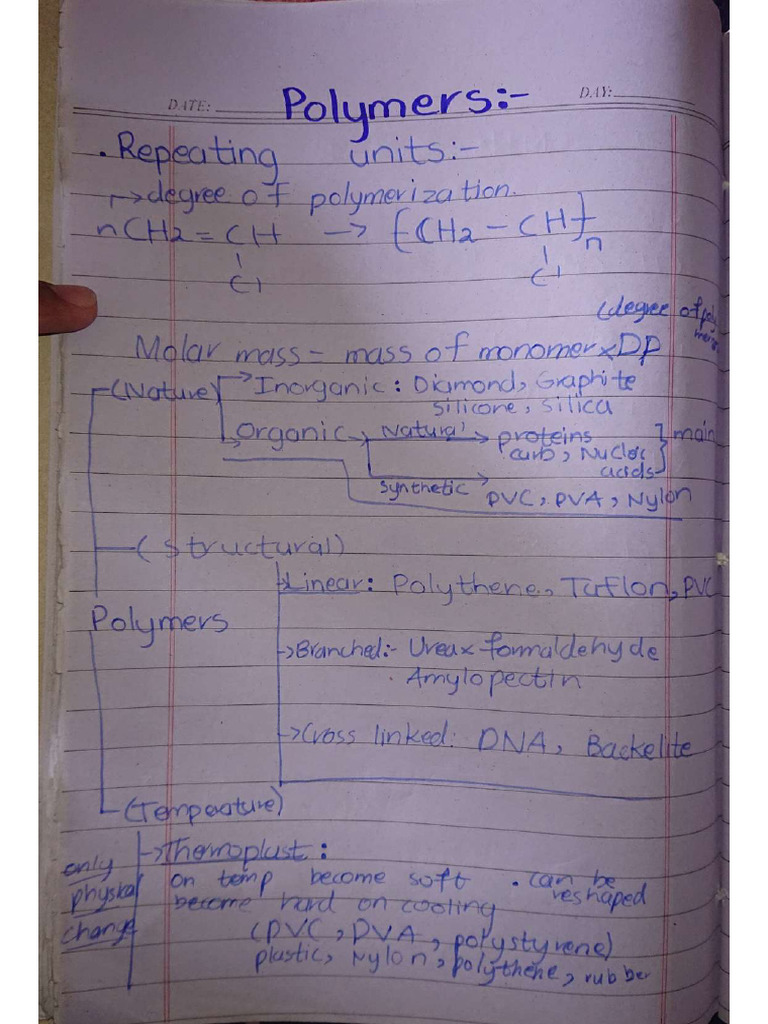 DATE: DAY:
Polymers:-
. Repeating units:-
→degree of polymerization.
nCH2 = CH → [CH2 - CH]n
Cl Cl
(degree of poly
Molar mass - mass of monomer x DP
(Nature) → Inorganic : Diamond, Graphite
silicone, silica
→ Organic → Natural → proteins } main
carb, Nucleic
acids
synthetic → PVC, PVA, Nylon
(structural)
→Linear: Polythene, Teflon, PVC
Polymers
→Branched:- Urea x formaldehyde
. Amylopectin
→Cross linked: DNA, Backelite
(Temperature)
→Thermoplast :
only on temp become soft . can be
physical become hard on cooling reshaped
change (PVC, PVA, polystyrene)
plastic, Nylon, polythene, rubber